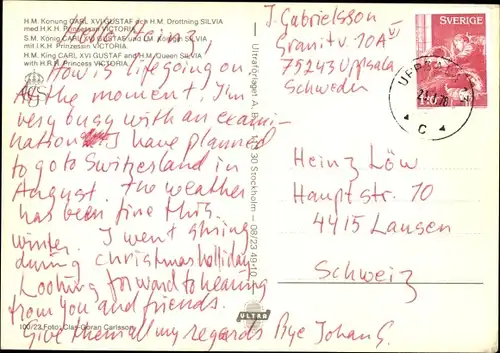 H.M. Konung CARL XVI GUSTAF och H.M. Drottning SILVIA
med H.K.H. Prinsessan VICTORIA
S.M. König CARL XVI GUSTAF und I.M. Königin SILVIA
mit I.K.H. Prinzessin VICTORIA
H.M. King CARL XVI GUSTAF and H.M. Queen SILVIA
with H.R.H. Princess VICTORIA
Heinz,
How is life going on
at the moment, I'm
very busy with an exami-
nation I have planned
to go to Switzerland in
August. The weather
has been fine this
winter. I went skiing
during christmas holliday
Looking forward to hearing
from you and friends.
Give them all my regards Bye Johan G.
100/23 Foto: Clas-Göran Carlsson
Ultraförlaget A.B. 30 Stockholm - 08/23 49 10
ULTRA
J. Gabrielsson
Granitv. 10A VI
75243 Uppsala
Schweden
SVERIGE
UPPSALA
C
Heinz Löw
Hauptstr. 10
4415 Lausen
Schweiz